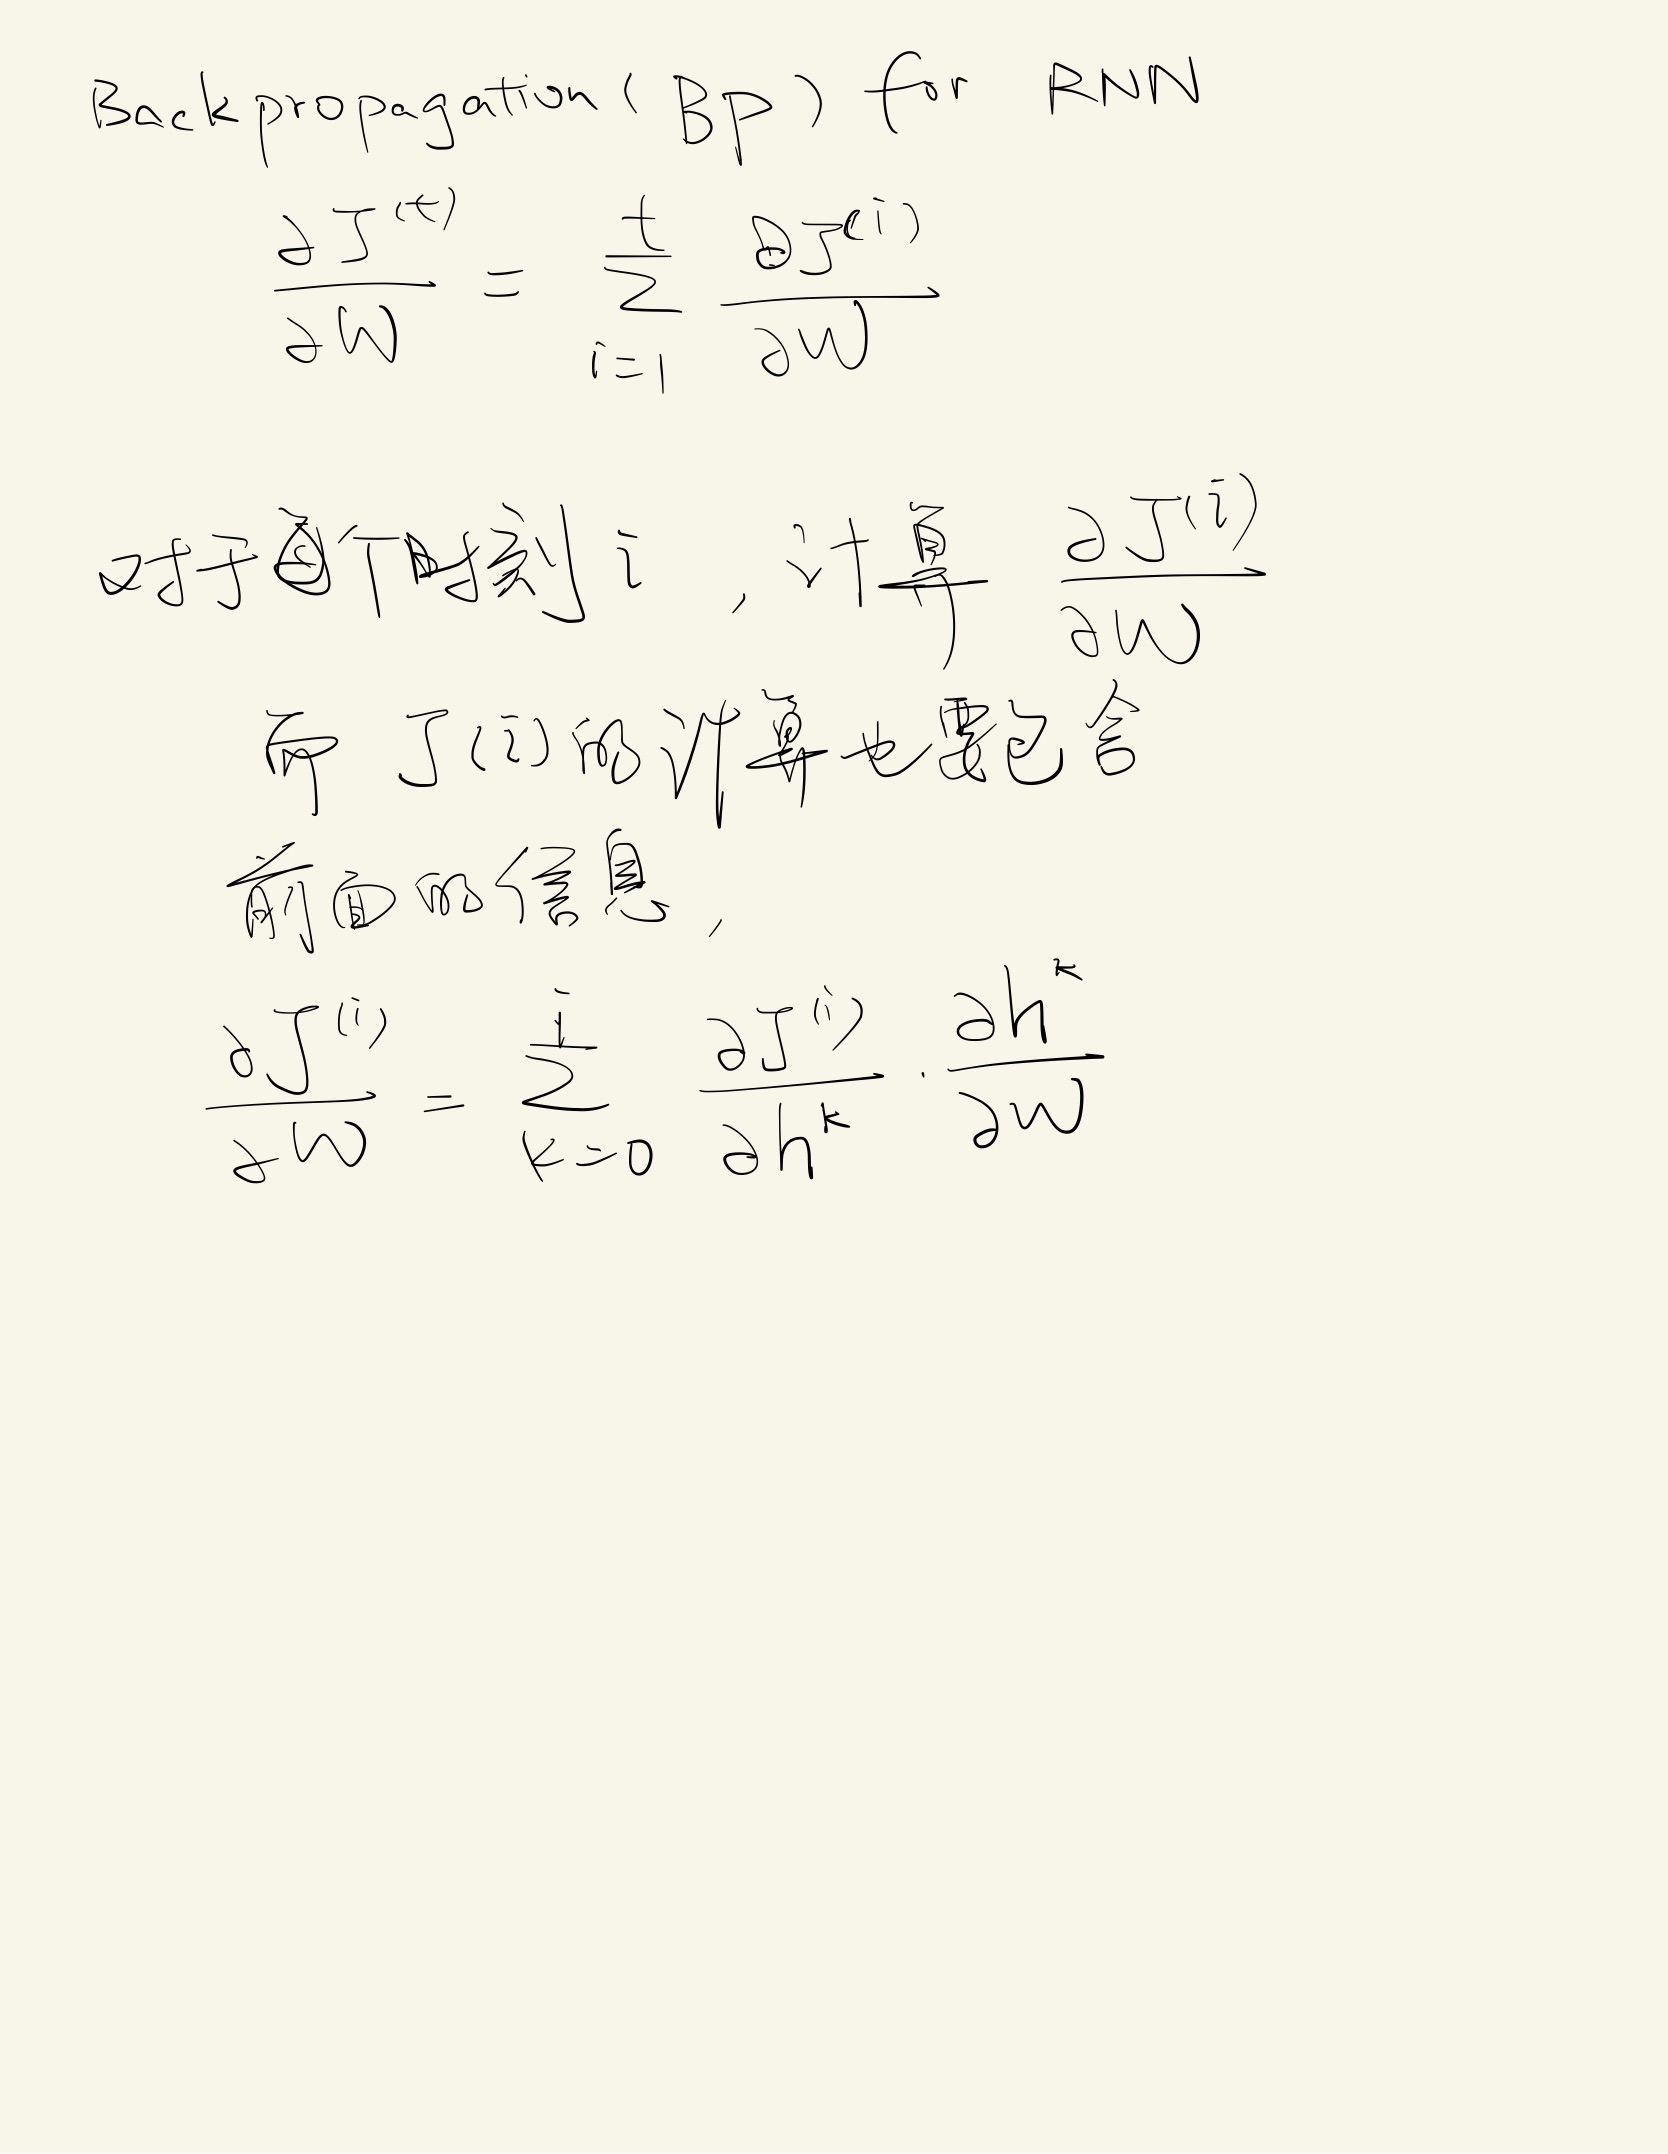 Backpropagation (BP) for RNN
∂J^(t)/∂W = Σ_{i=1}^{t} ∂J^(i)/∂W
对于每个时刻 i , 计算 ∂J^(i)/∂W
而 J(i) 的计算也要包含
前面的信息,
∂J^(i)/∂W = Σ_{k=0}^{i} ∂J^(i)/∂h^k · ∂h^k/∂W